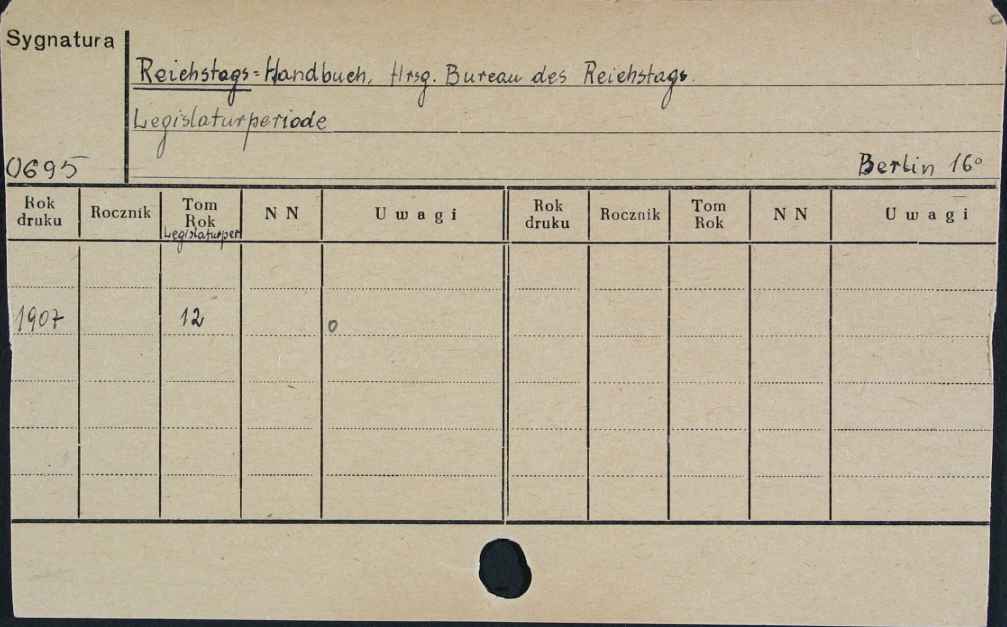 Sygnatura
Reichstags=Handbuch, Hrsg. Bureau des Reichstags.
Legislaturperiode
0695
Berlin 16°
Rok druku Rocznik Tom Rok Legislaturper NN Uwagi Rok druku Rocznik Tom Rok NN Uwagi
1907 12 o